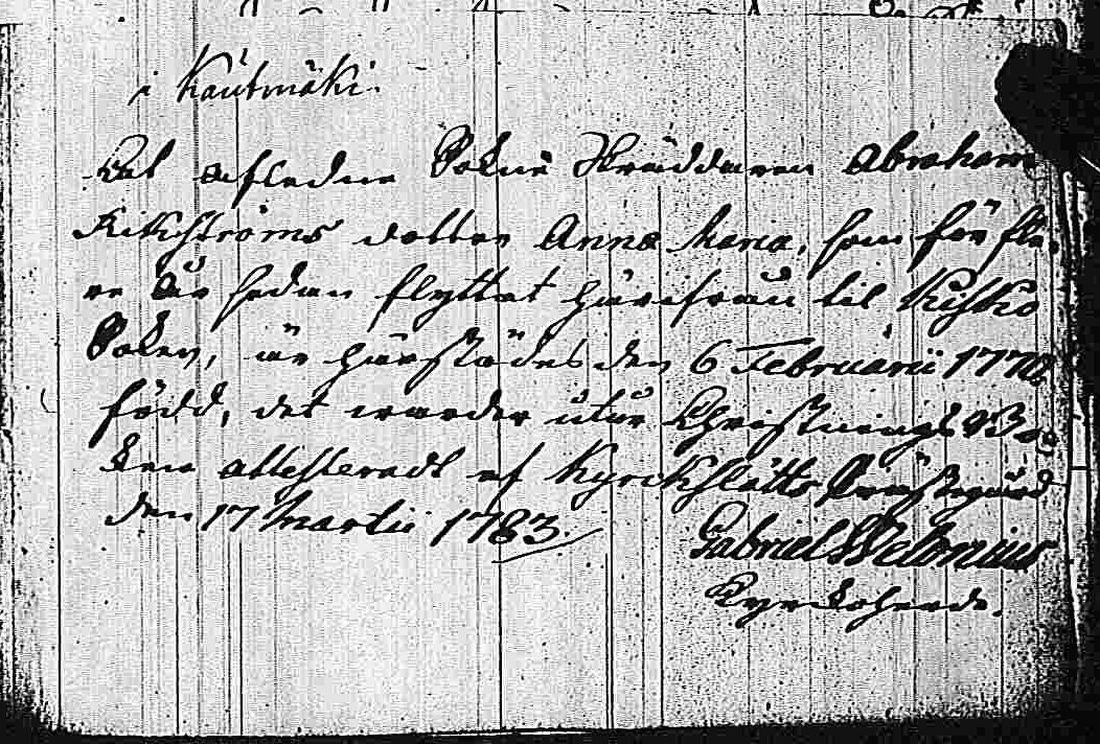 i Kautmäki.
Det afledne Sokne Skräddaren Abraham
Rikströms dotter Anna Maria, som för fle-
re År sedan flyttat härifrån til Kisko
Soken, är härstädes den 6 Februarii 1770
född, det warder utur Christnings Bo-
ken attesteradt af Kyrckslätts Prästegård
den 17 Martii 1783.
Gabriel
Kyrkoherde.